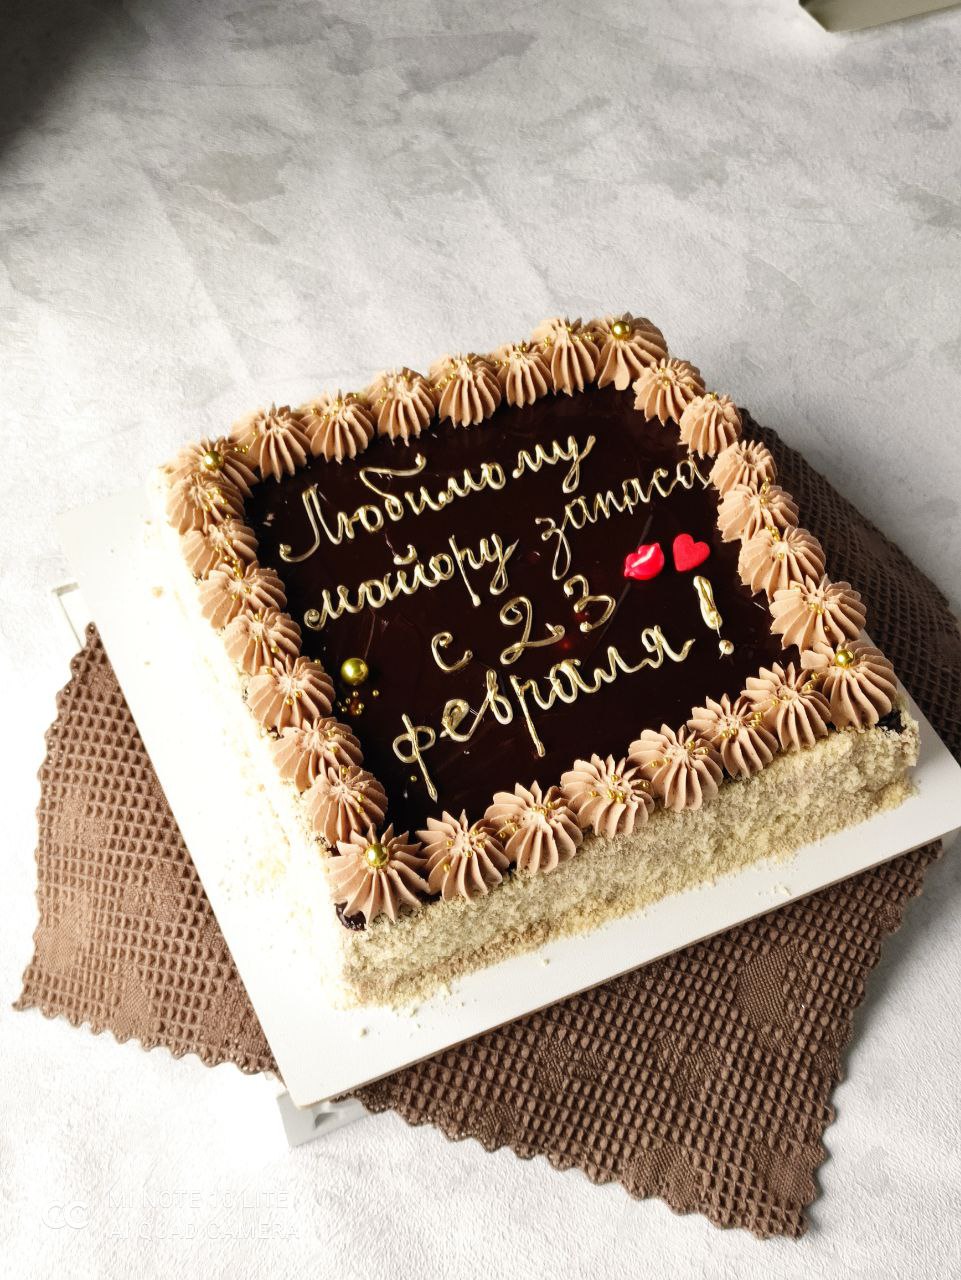 Любимому
майору запаса
с 23
февраля!
MI NOTE 10 LITE
AI QUAD CAMERA